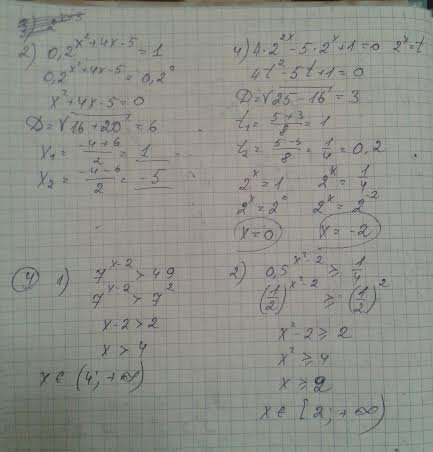 2) 0,2^(x²+4x-5) = 1
0,2^(x²+4x-5) = 0,2⁰
x²+4x-5=0
D=√16+20=6
x₁=(-4+6)/2=1
x₂=(-4-6)/2=-5
4) 4·2^(2x)-5·2^x+1=0 2^x=t
4t²-5t+1=0
D=√25-16=3
t₁=(5+3)/8=1
t₂=(5-3)/8=1/4=0,2
2^x=1 2^x=1/4
2^x=2⁰ 2^x=2^(-2)
x=0 x=-2
1) 7^(x-2)>49
7^(x-2)>7²
x-2>2
x>4
x∈(4;+∞)
2) 0,5^(x²-2)≥1/4
(1/2)^(x²-2)≥(1/2)²
x²-2≥2
x²≥4
x≥2
x∈[2;+∞)